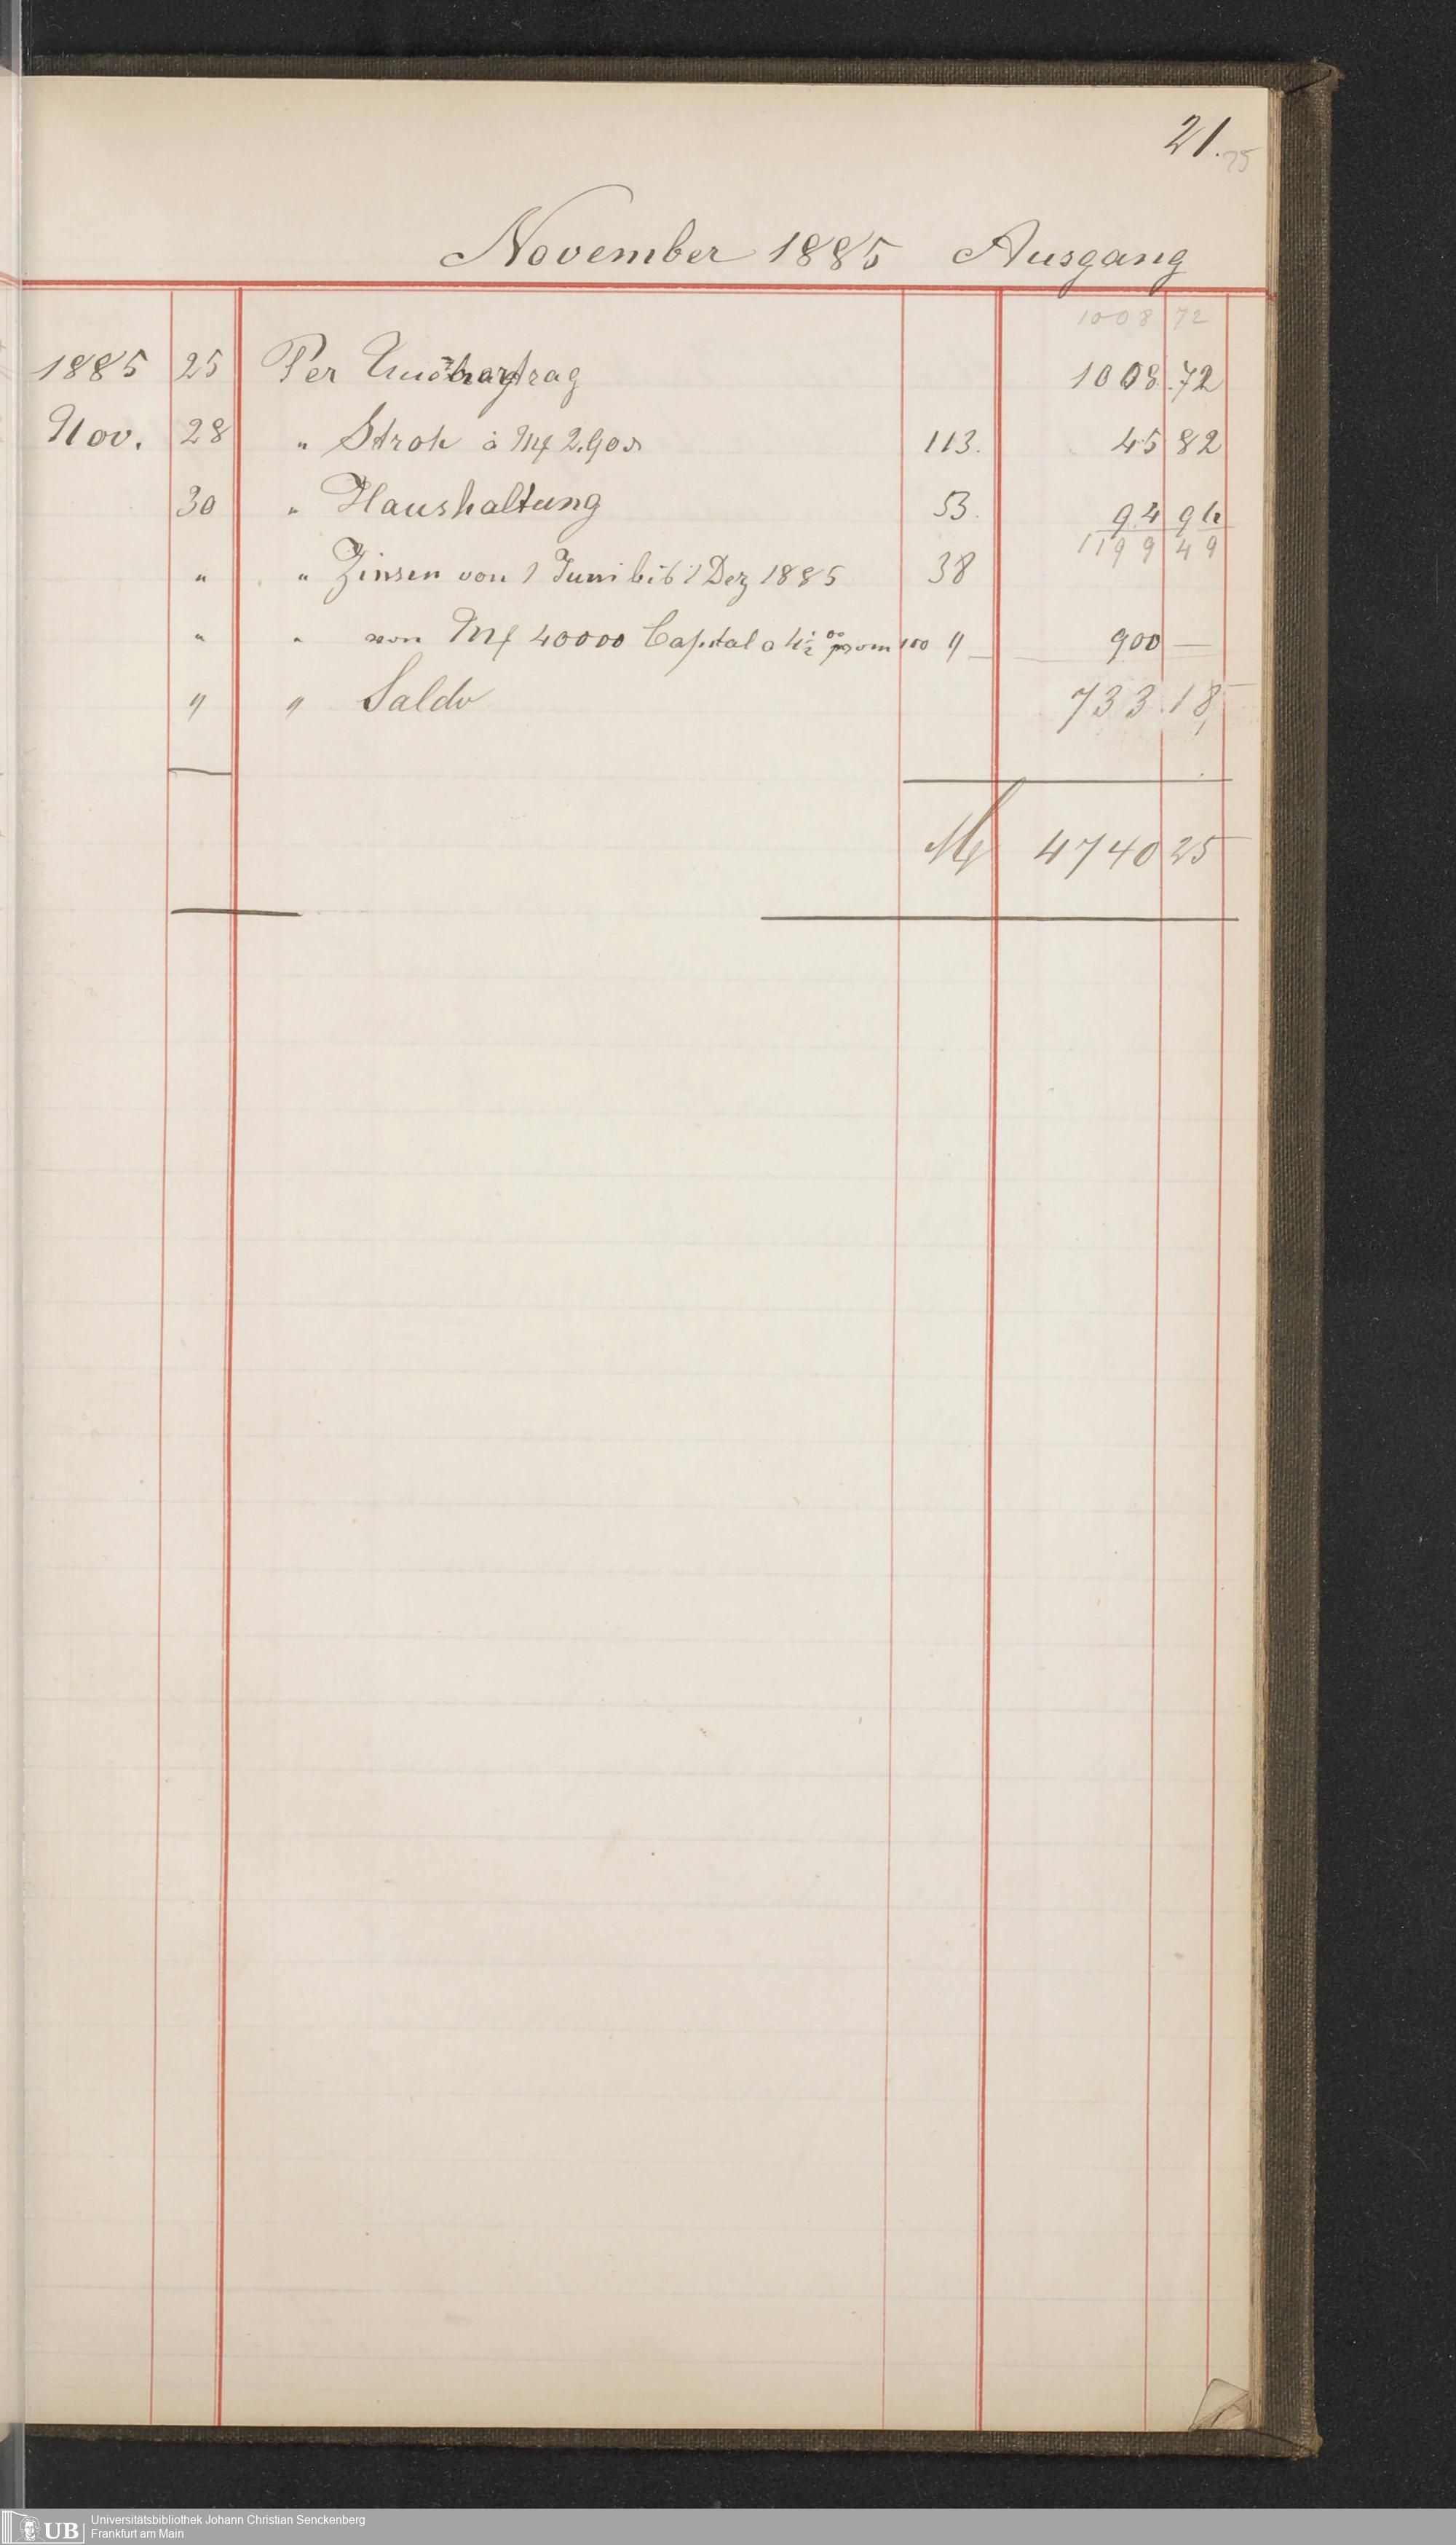 21. 25
November 1885 Ausgang
1008 72
1885 25 Per 1008.72
Nov. 28 " Stroh à Mf 2.90 113. 45 82
30 " Haushaltung 53. 94 94
1199 49
" " Zinsen von 1 Juni bis 1 Dez 1885 38
" " von Mf 40000 Capital a 4 1/2 100 " 900 —
" " Saldo 733.18
M 4740 25
UB Universitätsbibliothek Johann Christian Senckenberg
Frankfurt am Main